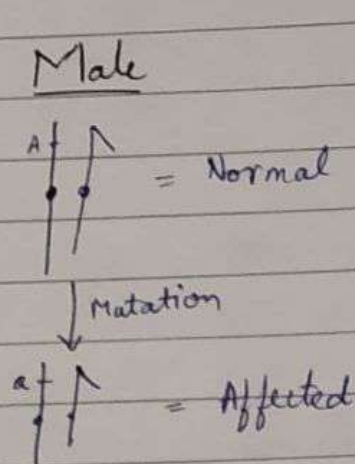 Male
A = Normal
Mutation
a = Affected